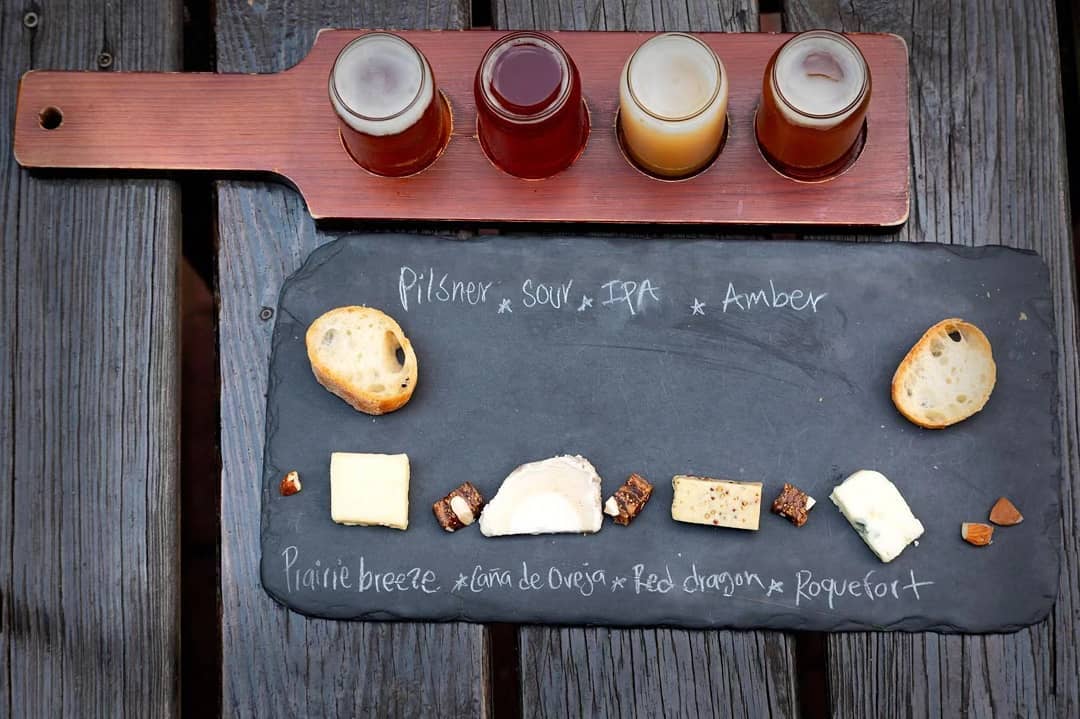 Pilsner * Sour * IPA * Amber
Prairie breeze * Caña de Oveja * Red dragon * Roquefort